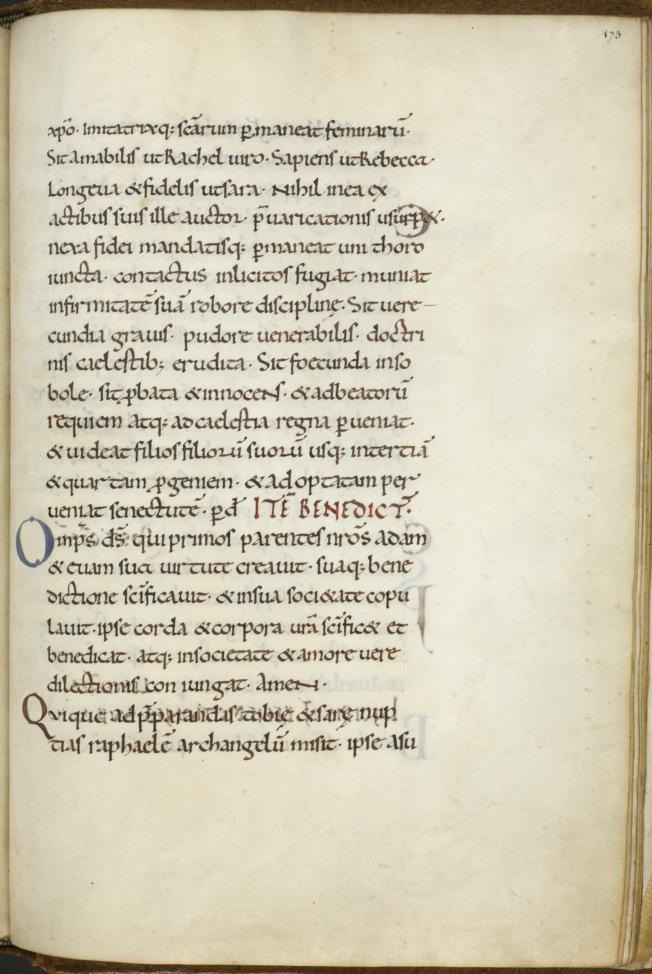 173
xp̄o· Imitatrixq; sc̄arum p̱maneat feminarū·
Sit amabilis ut Rachel uiro· Sapiens ut Rebecca·
Longeua & fidelis ut sara· Nihil in ea ex
actibus suis ille auctor p̄uaricationis usurp&·
nexa fidei mandatisq; p̱maneat uni thoro
iuncta· contactus inlicitos fugiat· muniat
infirmitatē suā robore discipline· Sit uere
cundia grauis· pudore uenerabilis· doctri
nis caelestib; erudita· Sit foecunda inso
bole· sit ꝓbata & innocens· & ad beatorū
requiem atq; ad caelestia regna p̱ueniat·
& uideat filios filiorū suorū usq; in tertiā
& quartam ꝓgeniem· & ad optatam per
ueniat senectutē· p̱ d̄ ITĒ BENEDICT̄·
Omp̄s d̄s qui primos parentes nr̄os adam
& euam sua uirtute creauit· suaq; bene
dictione sc̄ificauit· & in sua soci&ate copu
lauit· ipse corda & corpora ur̄a sc̄ific& et
benedicat· atq; in societate & amore uere
dilectionis con iungat· AmeN·
Quique ad p̄parandas tobię & sarę nup
tias raphaelē archangelū misit· ipse asu